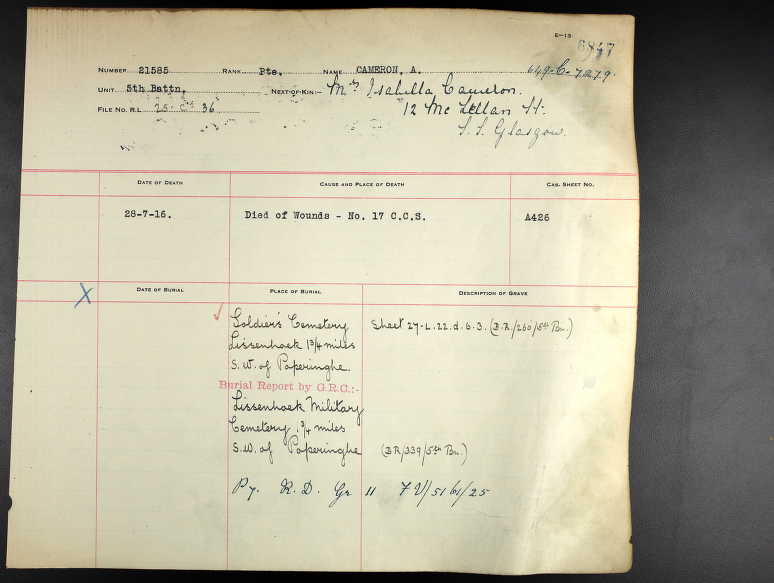 E-13 6847
NUMBER 21585 RANK Pte. NAME CAMERON, A. 649-C-7279.
UNIT 5th Battn. NEXT-OF-KIN:- Mrs Isabella Cameron.
12 McLellan St.
FILE NO. R.L. 25 36 S.S. Glasgow.
DATE OF DEATH CAUSE AND PLACE OF DEATH CAS. SHEET NO.
28-7-16. Died of Wounds - No. 17 C.C.S. A426
DATE OF BURIAL PLACE OF BURIAL DESCRIPTION OF GRAVE
X
Soldier's Cemetery Sheet 27-L.22.d.6.3. (B.R./260/5th Bn.)
Lissenhoek 1 3/4 miles
S.W. of Poperinghe.
Burial Report by G.R.C:-
Lissenhoek Military
Cemetery 1 3/4 miles
S.W. of Poperinghe (BR/339/5th Bn.)
R. D. Gr 11